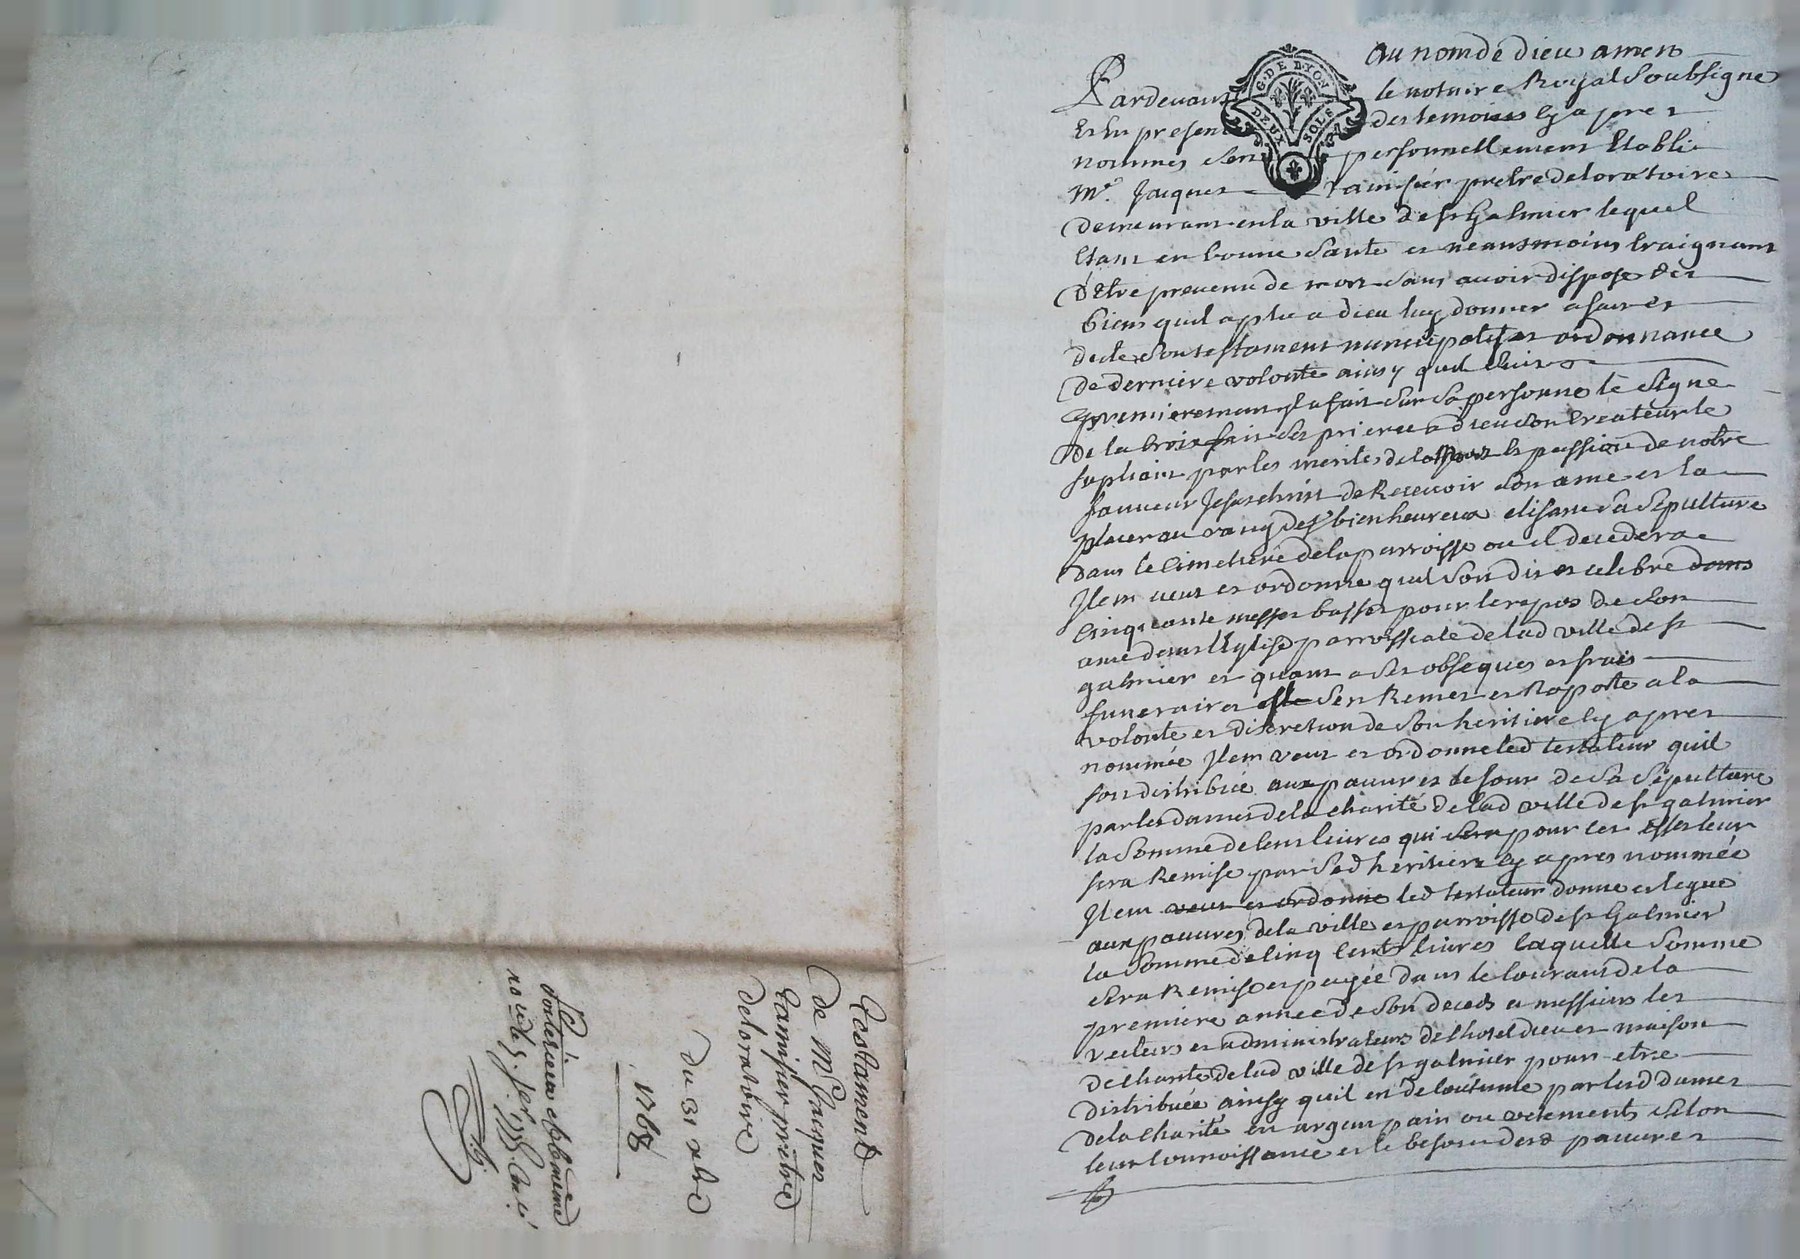 Testament
de Mr Jacques
prêtre
de loratoire
du 31 xbre
1768
au nom de dieu amen
Pardevant le notaire Royal Soubsigne
Et En presence des temoins Cy apres
nommes personnellement Etabli
Mr. Jacques prêtre de loratoire
demeurant en la ville de st Galmier lequel
Etant en bonne Santé et neansmoins Craignant
d'Etre prevenu de mort Sans avoir disposé des
biens quil a plu a dieu luy donner a fait et
dicté Son testament nuncupatif et ordonnance
de derniere volonté ainsy quil Suit
premierement Il a fait Sur Sa personne le Signe
de la Croix fait Ses prieres a dieu Son Createur le
supliant par les merites de la mort et passion de notre
sauveur Jesus christ de Recevoir Son ame et la
placer au rang des bienheureux elisant Sa Sepulture
dans le Cimetiere de la parroisse ou il decedera
Item veut et ordonne quil Soit dit et celebré dans
Cinquante messes basses pour le repos de Son
ame dans l'Eglise parroissiale de lad ville de st
galmier et quant a Ses obseques et frais
funeraires Il Sen Remet et Raporte a la
volonté et discretion de Son heritiere Cy apres
nommée Item veut et ordonne led testateur quil
soit distribué aux pauvres le jour de Sa Sepulture
par les dames de la charité de lad ville de st galmier
la Somme de Cent livres qui Sera pour cet effet leur
sera Remise par Sad heritiere Cy apres nommée
Item veut et ordonne led testateur donne et legue
aux pauvres de la ville et parroisse de st Galmier
la Somme de Cinq Cents livres laquelle Somme
Sera Remise et payée dans le Courant de la
premiere année de Son deces a messieurs les
recteurs et administrateurs de l'hotel dieu et maison
de charité de lad ville de st galmier pour etre
distribuée ainsy quil en de Coutume par lesd dames
de la Charité en argent pain ou vetements Selon
leur Connoissance et le besoin desd pauvres
G. DE LYON
DEUX SOLS